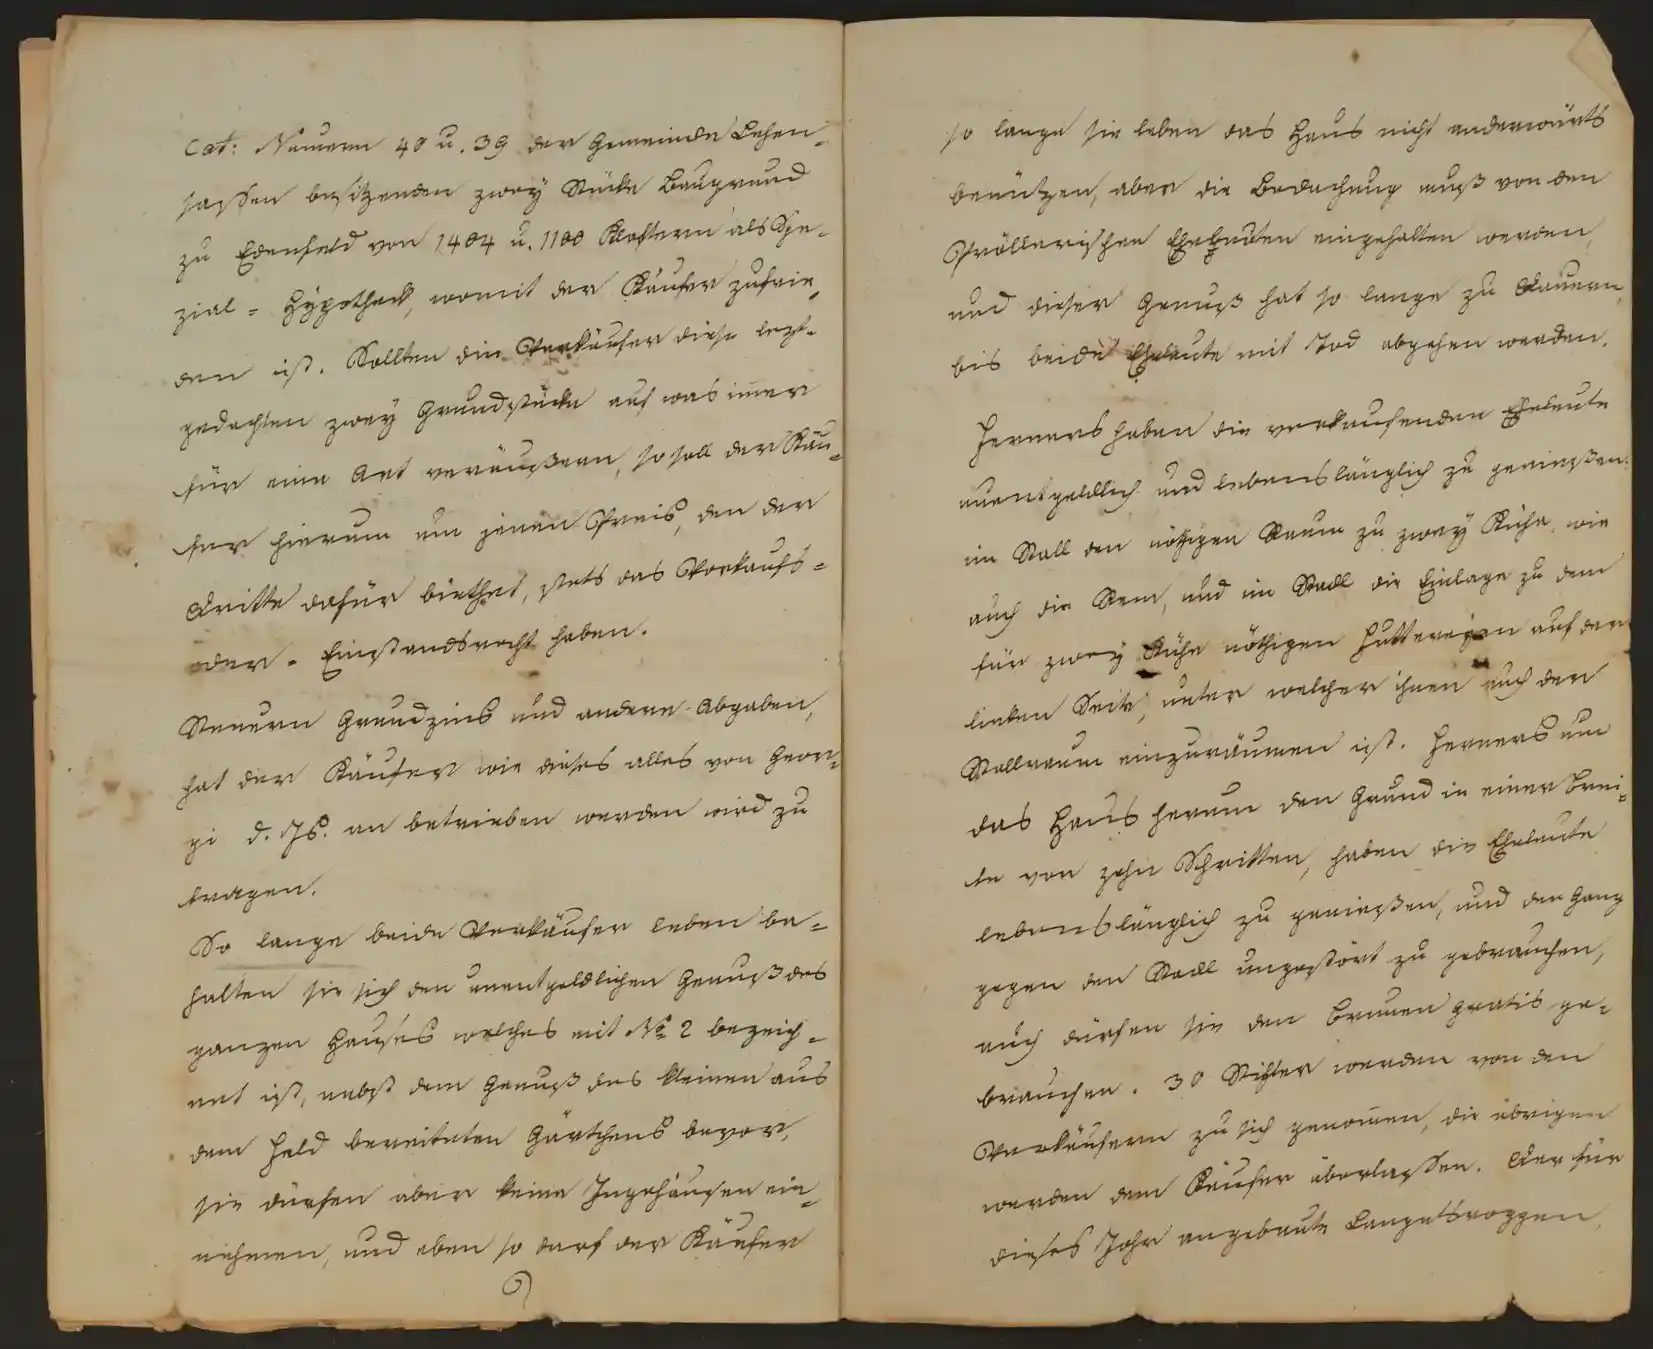 Cat: Numern 40 u. 39 der Gemeinde Lehen-
sassen besitzenden zweÿ Stücke Baugrund
zu Edenfeld von 1404 u. 1100 Klaftern als Spe-
zial = Hÿpotheck, womit der Käufer zufrie-
den ist. Sollten die Verkäufer diese lezt-
gedachten zweÿ Grundstücke auf was im̄er
für eine Art veräußern, so soll der Käu-
fer hierum um jenen Preis, den der
Dritte dafür biethet, stets das Vorkaufs-
oder - Einstandsrecht haben.
Steuern Grundzins und andere Abgaben,
hat der Käufer wie dieses alles von Geor-
gi d. Js. an betrieben werden wird zu
tragen.
So lange beide Verkäufer leben be-
halten sie sich den unentgeldlichen Genuß des
ganzen Hauses welches mit No 2 bezeich-
net ist, nebst dem Genuß des kleinen aus
dem Feld bereiteten Gärtchens bevor,
sie dürfen aber keine Ingehäusen ein-
nehmen, und eben so darf der Käufer
so lange sie leben das Haus nicht anderwärts
benützen, aber die Bedachung muß von den
Pröllerischen Eheleuten eingehalten werden,
und dieser Genuß hat so lange zu dauern,
bis beide Eheleute mit Tod abgehen werden.
Ferners haben die verkaufenden Eheleute
unentgeldlich und lebenslänglich zu genießen:
im Stall den nöthigen Raum zu zweÿ Kühe, wie
auch die Rem, und im Stadl die Einlage zu dem
für zweÿ Kühe nöthigen Futtereyen auf der
linken Seite, unter welcher ihnen auch der
Stallraum einzuräumen ist. Ferners um
das Haus herum den Grund in einer Brei-
te von zehn Schritten, haben die Eheleute
lebenslänglich zu genießen, und den Gang
gegen den Stadl ungestört zu gebrauchen,
auch dürfen sie den Brunen gratis ge-
brauchen. 30 Stifter werden von den
Verkäufern zu sich genom̄en, die übrigen
werden dem Käufer überlassen. Der für
dieses Jahr angebaute Langetsroggen,